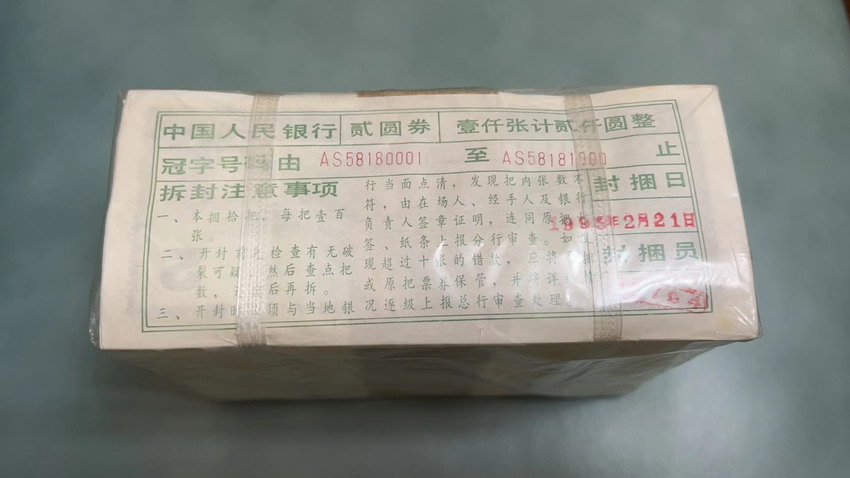 中国人民银行 贰圆券 壹仟张计贰仟圆整
冠字号码由 AS58180001 至 AS58181000 止
拆封注意事项
一、本捆拾把，每把壹百
张。
二、开封前先检查有无破
裂可疑，然后查点把
数，后再拆。
三、开封时须与当地银
行当面点清，发现把内张数不
符，由在场人、经手人及银行
负责人签章证明，连同原把
签、纸条上报分行审查。如
现超过十张的错款，应将
或原把票券保管，并将详
况逐级上报总行审查处理
封捆日
年2月21日
封捆员